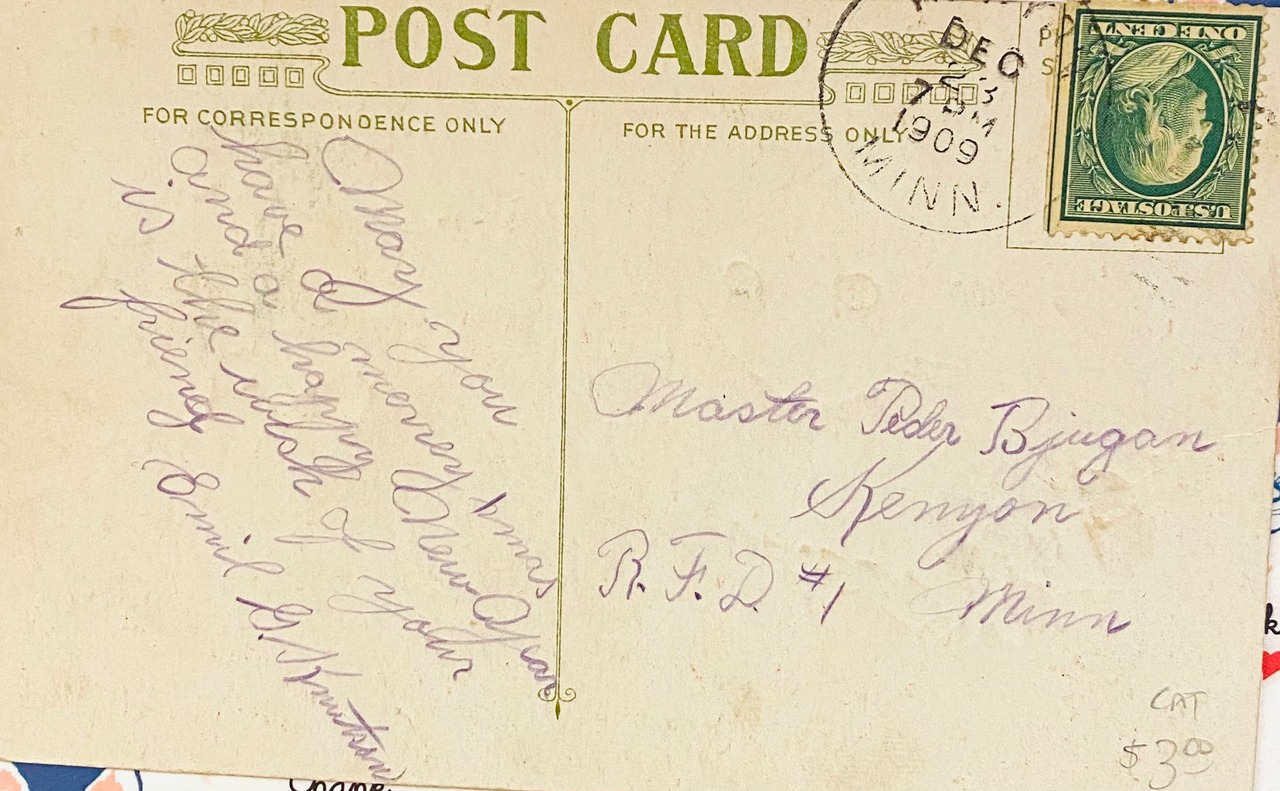 POST CARD
FOR CORRESPONDENCE ONLY
FOR THE ADDRESS ONLY
DEC
23
7 PM
1909
MINN.
U.S. POSTAGE
ONE CENT
May you
have a merry Xmas
and a happy New Year
is the wish of your
friend Emil G. Knutson
Master Peder Bjugan
Kenyon
R.F.D. #1 Minn
CAT
$3.00